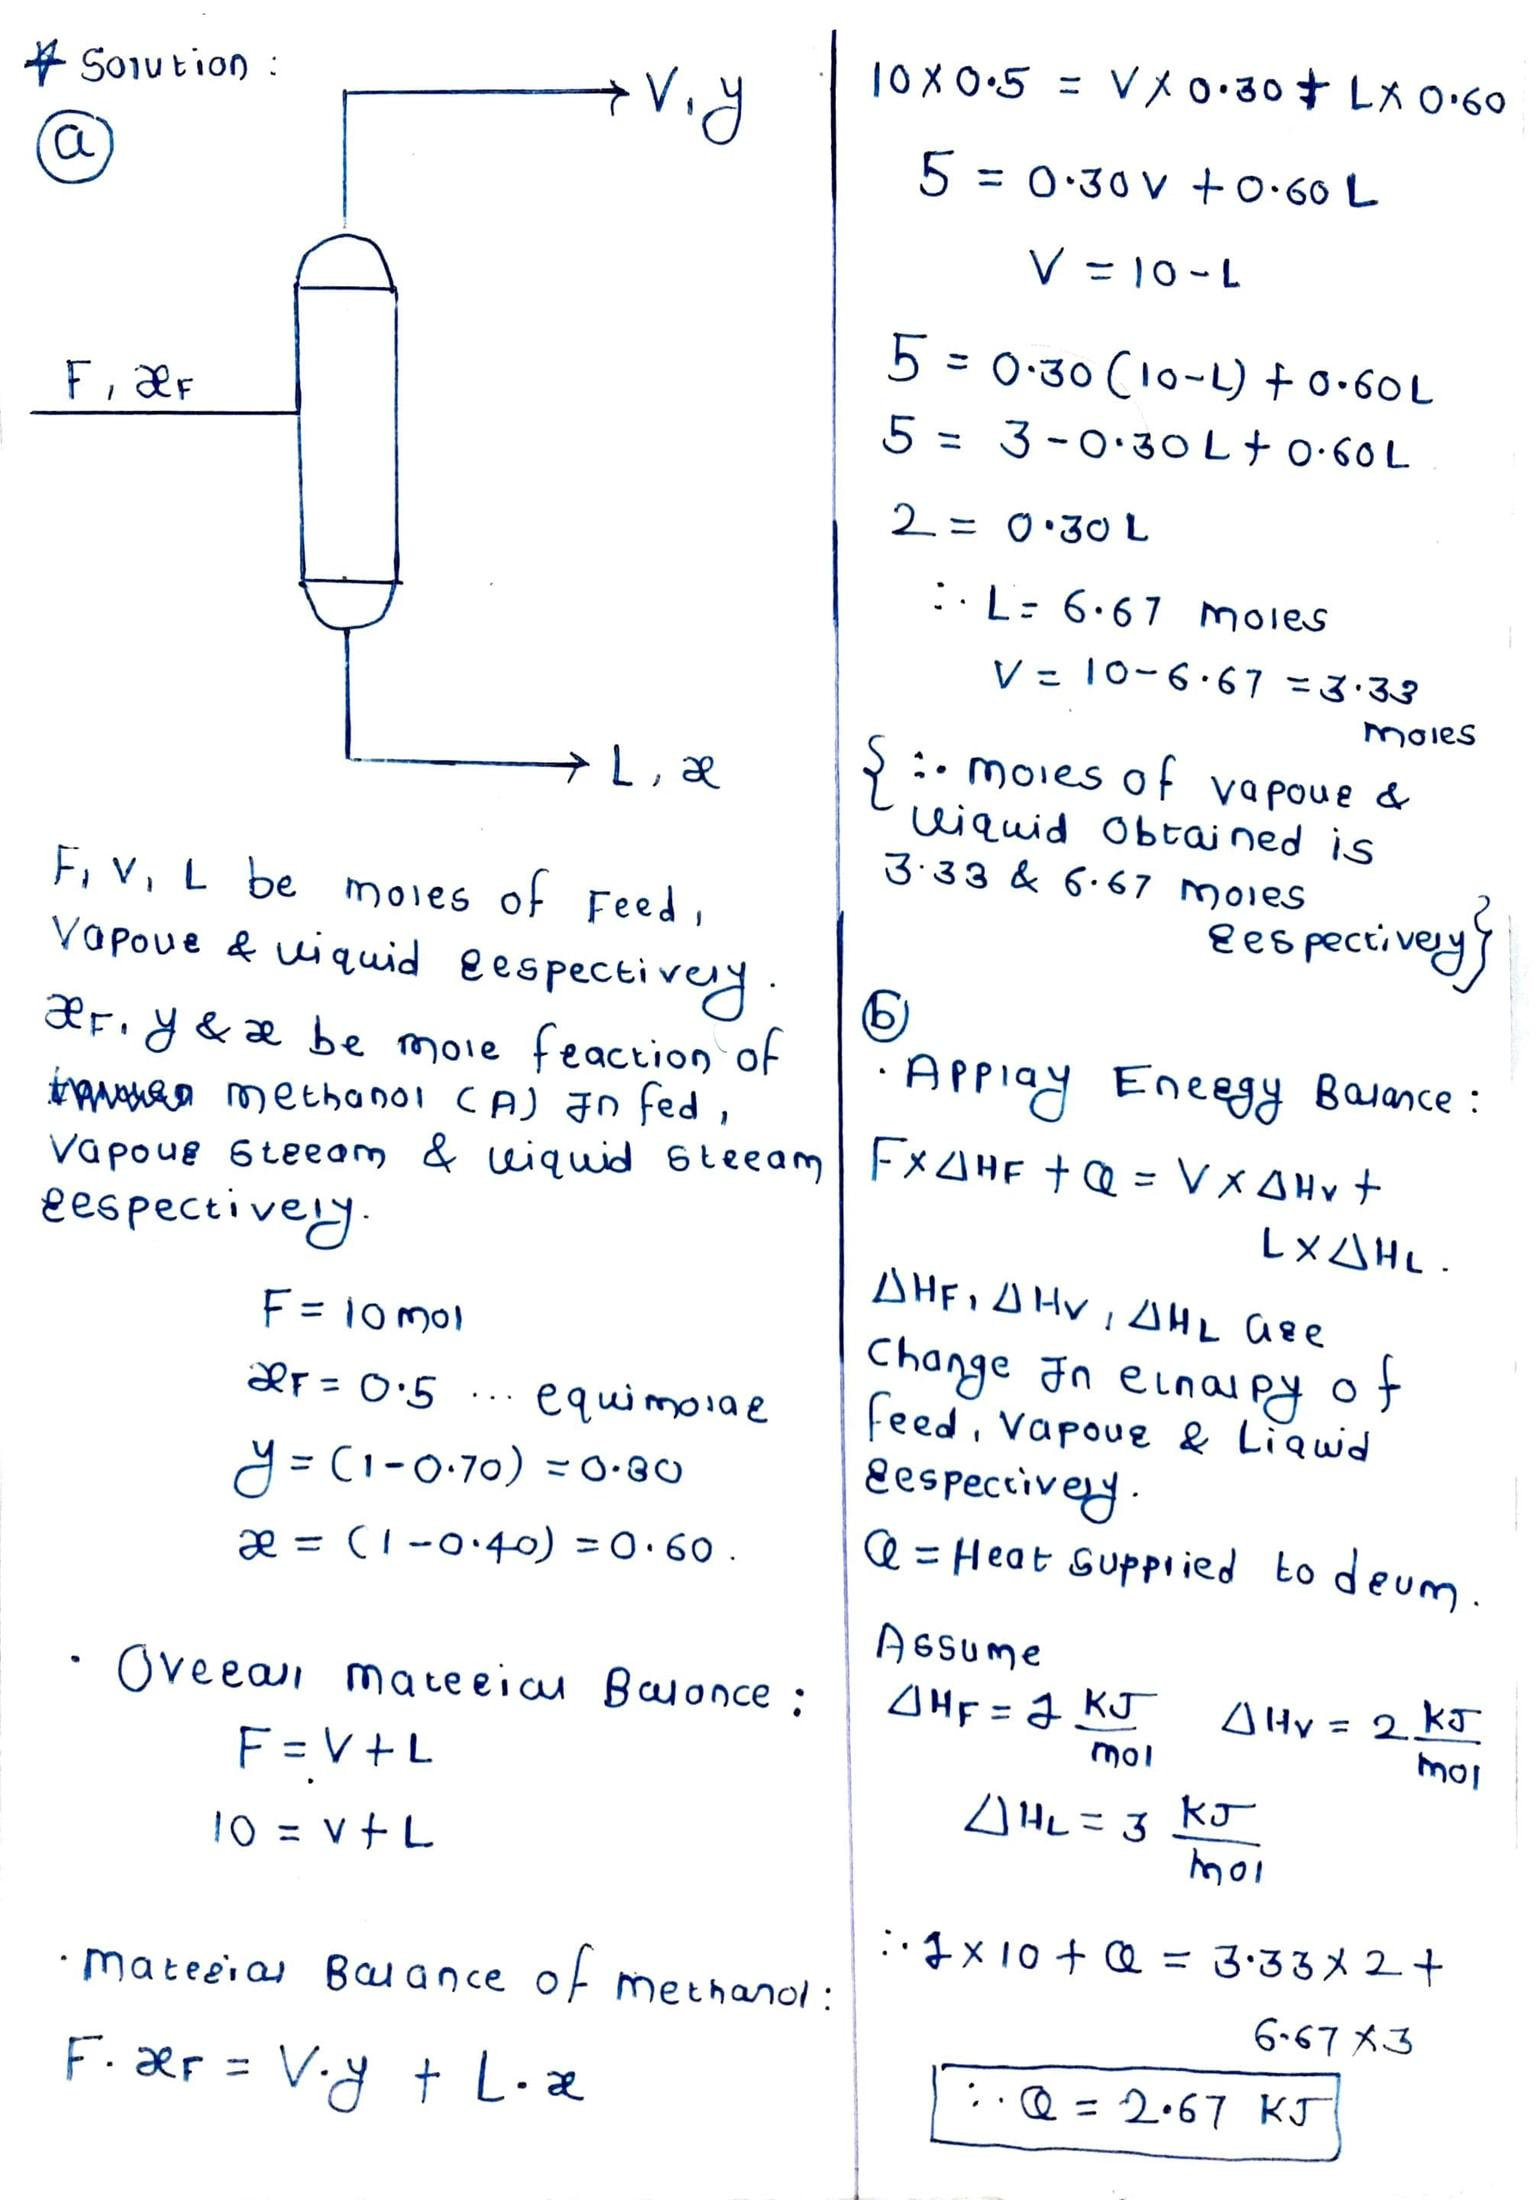 * Solution :
(a)
V, y
F, xF
L, x
F, V, L be moles of Feed,
Vapour & Liquid respectively.
xF, y & x be mole fraction of
methanol (A) In fed,
Vapour stream & Liquid stream
respectively.
F = 10 mol
xF = 0.5 ... equimolar
y = (1-0.70) = 0.30
x = (1-0.40) = 0.60.
· Overall material Balance :
F = V + L
10 = V + L
· Material Balance of methanol :
F. xF = V.y + L.x
10 x 0.5 = V x 0.30 + L x 0.60
5 = 0.30V + 0.60 L
V = 10 - L
5 = 0.30 (10-L) + 0.60L
5 = 3 - 0.30 L + 0.60L
2 = 0.30 L
∴ L = 6.67 moles
V = 10 - 6.67 = 3.33
moles
{ ∴ moles of vapour &
Liquid Obtained is
3.33 & 6.67 moles
respectively }
(b)
· Applay Energy Balance :
F x ΔHF + Q = V x ΔHV +
L x ΔHL .
ΔHF, ΔHV, ΔHL are
Change In elnalpy of
feed, Vapour & Liquid
respectively.
Q = Heat Supplied to drum.
Assume
ΔHF = 1 KJ/mol ΔHV = 2 KJ/mol
ΔHL = 3 KJ/mol
∴ 1 x 10 + Q = 3.33 x 2 +
6.67 x 3
∴ Q = 2.67 KJ